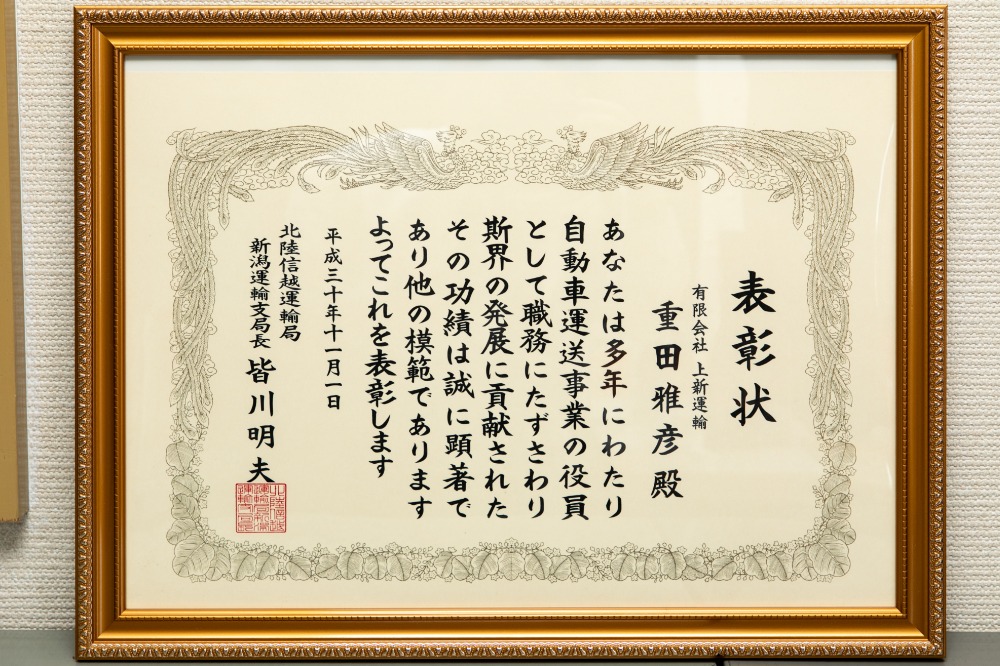 表彰状
有限会社 上新運輸
重田雅彦殿
あなたは多年にわたり
自動車運送事業の役員
として職務にたずさわり
斯界の発展に貢献された
その功績は誠に顕著で
あり他の模範であります
よってこれを表彰します
平成三十年十一月一日
北陸信越運輸局
新潟運輸支局長 皆川明夫